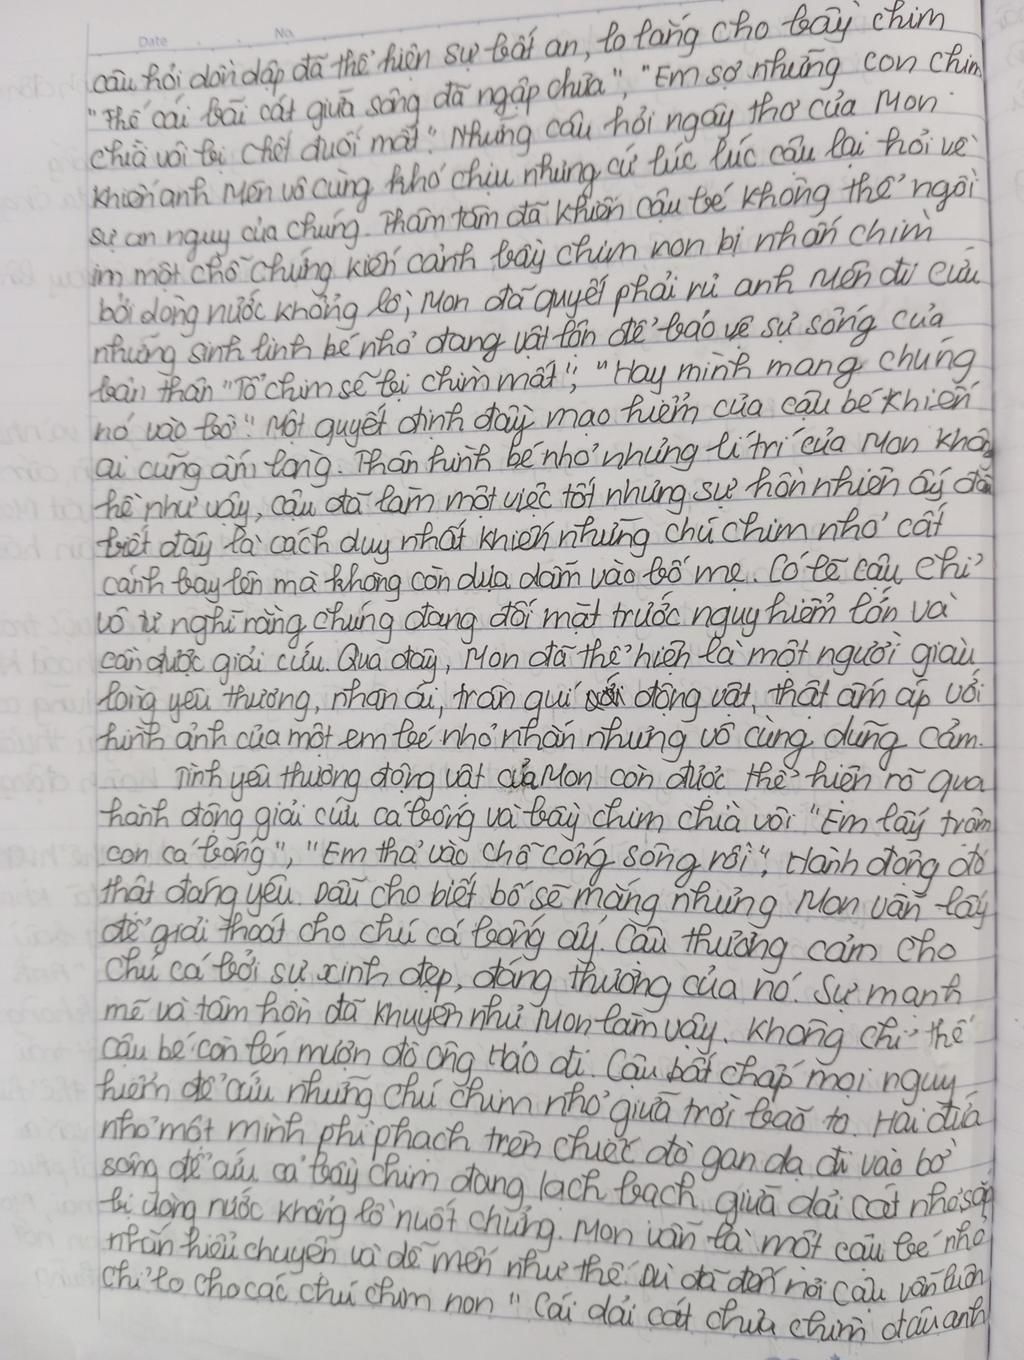 Date No.
câu hỏi dồn dập đã thể hiện sự bất an, lo lắng cho bầy chim
"Thế cái bãi cát giữa sông đã ngập chưa", "Em sợ những con chim
chìa vôi bị chết đuối mất". Những câu hỏi ngây thơ của Mon
khiến anh Mên vô cùng khó chịu nhưng cứ lúc lúc cậu lại hỏi về
sự an nguy của chúng. Thâm tâm đã khiến cậu bé không thể ngồi
im một chỗ chứng kiến cảnh bầy chim non bị nhấn chìm
bởi dòng nước khổng lồ, Mon đã quyết phải rủ anh Mên đi cứu
những sinh linh bé nhỏ đang vật lộn để bảo vệ sự sống của
bản thân "Tổ chim sẽ bị chìm mất", "Hay mình mang chúng
nó vào bờ". Một quyết định đầy mạo hiểm của cậu bé khiến
ai cũng ấm lòng. Thân hình bé nhỏ nhưng lí trí của Mon không
hề như vậy, cậu đã làm một việc tốt nhưng sự hồn nhiên ấy đã
biết đây là cách duy nhất khiến những chú chim nhỏ cất
cánh bay lên mà không còn dựa dẫm vào bố mẹ. Có lẽ cậu chỉ
vô tư nghĩ rằng chúng đang đối mặt trước nguy hiểm lớn và
cần được giải cứu. Qua đây, Mon đã thể hiện là một người giàu
lòng yêu thương, nhân ái, trân quí động vật, thật ấm áp với
hình ảnh của một em bé nhỏ nhắn nhưng vô cùng dũng cảm.
Tình yêu thương động vật của Mon còn được thể hiện rõ qua
hành động giải cứu cá bống và bầy chim chìa vôi "Em lấy trộm
con cá bống", "Em thả vào chỗ cống sông rồi", Hành động đó
thật đáng yêu. Dẫu cho biết bố sẽ mắng nhưng Mon vẫn lấy
để giải thoát cho chú cá bống ấy. Cậu thương cảm cho
chú cá bởi sự xinh đẹp, đáng thương của nó. Sự mạnh
mẽ và tâm hồn đã khuyên nhủ Mon làm vậy. Không chỉ thế
cậu bé còn lén mượn đò ông Hảo đi. Cậu bất chấp mọi nguy
hiểm để cứu những chú chim nhỏ giữa trời bão to. Hai đứa
nhỏ một mình phì phạch trên chiếc đò gan dạ đi vào bờ
sông để cứu cả bầy chim đang lạch bạch giữa dải cát nhỏ sắp
bị dòng nước khổng lồ nuốt chửng. Mon vẫn là một cậu bé nhỏ
nhắn hiểu chuyện và dễ mến như thế. Dù đã đến nơi cậu vẫn luôn
chỉ lo cho các chú chim non "Cái dải cát chưa chìm đâu anh